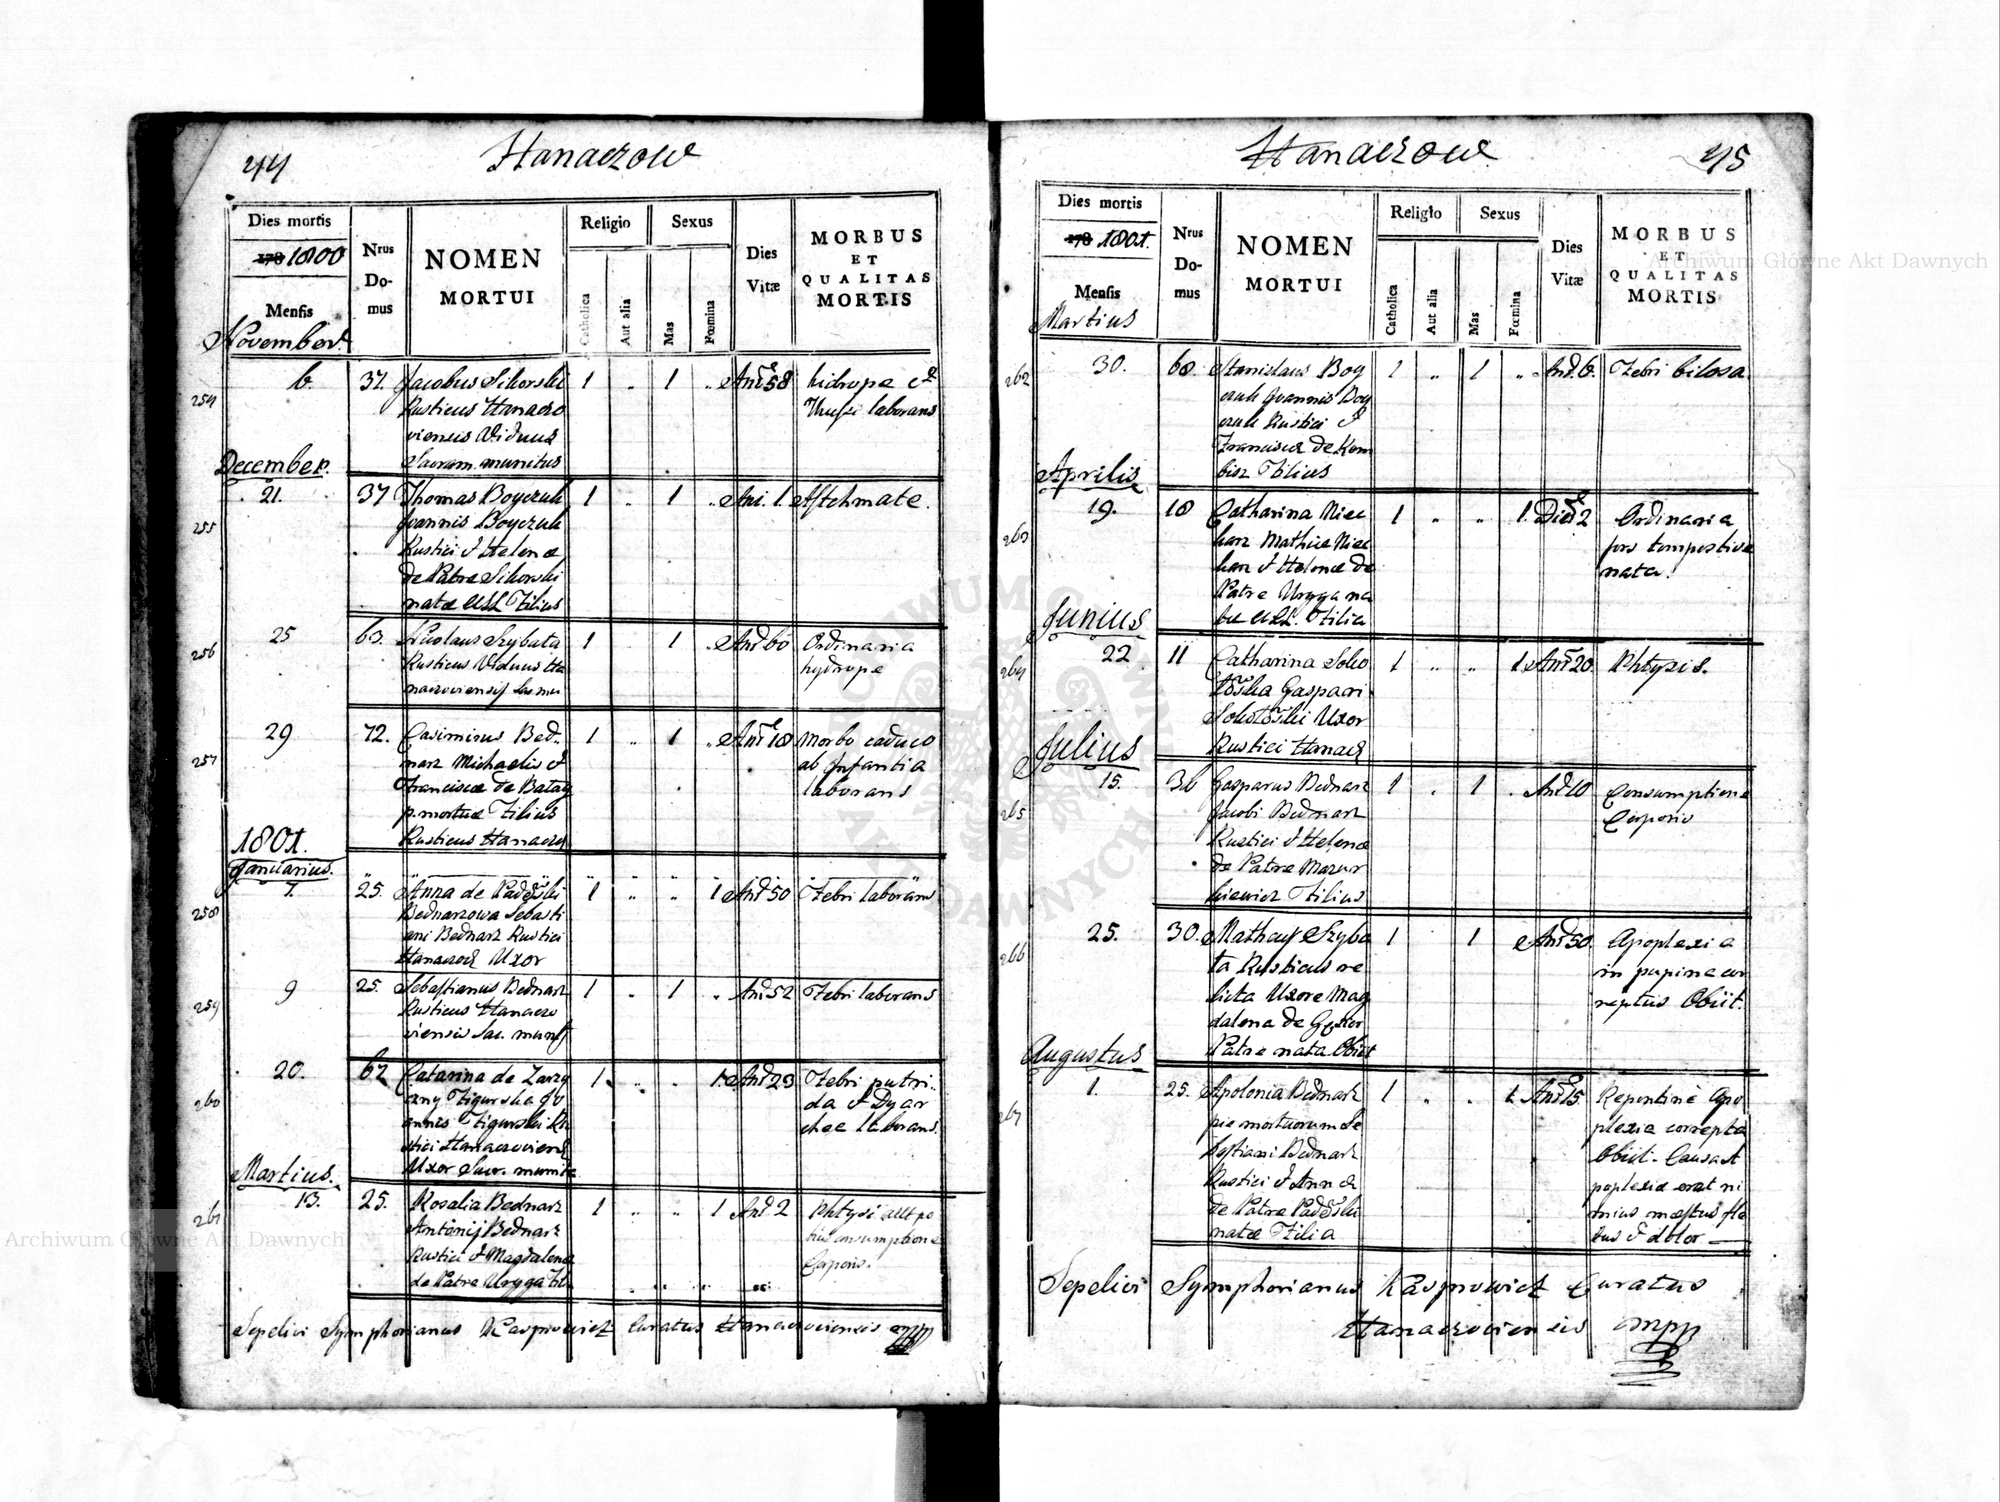 44
Hanaczow
Dies mortis
178 1800
Mensis
Nrus
Do-
mus
NOMEN
MORTUI
Religio
Catholica
Aut alia
Sexus
Mas
Fœmina
Dies
Vitæ
MORBUS
ET
QUALITAS
MORTIS
November
254
6.
37.
Jacobus Sikorski
Rusticus Hanaczo
viensis Viduus
Sacram. munitus
1
1
58
hidrope et
laborans
December.
255
21.
37
Thomas Boyczuk
Joannis Boyczuk
Rustici & Helenæ
de Patre Sikorski
natæ Filius
1
1
Ani. 1.
Asthmate.
256
25
63.
Nicolaus Szybata
Rusticus Viduus Ha
naczoviensis
1
1
60
Ordinaria
hydrope
257
29
72.
Casimirus Bed-
narz Michaelis &
Franciscæ de Batag
p. mortuæ Filius
Rusticus Hanaczo
1
1
18
Morbo caduco
ab Infantia
laborans
1801.
Januarius.
258
7.
25.
Anna de
Bednarzowa Sebasti
ani Bednarz Rustici
Hanaczov Uxor
1
1
50
Febri laborans
259
9
25.
Sebastianus Bednarz
Rusticus Hanaczo
viensis Sac. munit
1
1
52
Febri laborans
260
20.
62
Catarina de Zarzy
czny Figurska Jo
annis Figurski Ru
stici Hanaczoviens
Uxor Sacr. munita
1
1
23
Febri putri-
da & Dyar
rhea laborans.
Martius.
261
13.
25.
Rosalia Bednarz
Antonij Bednarz
Rustici & Magdalena
de Patre Uryga fil
1
1
2
Phtysi
consumptione
Corporis.
Sepelivi Symphorianus Kasprowicz Curatus Hanaczoviensis mpp
45
Hanaczow
Dies mortis
178 1801.
Mensis
Nrus
Do-
mus
NOMEN
MORTUI
Religio
Catholica
Aut alia
Sexus
Mas
Fœmina
Dies
Vitæ
MORBUS
ET
QUALITAS
MORTIS
Martius
262
30.
68.
Stanislaus Boy
czuk Joannis Boy
czuk Rustici &
Francisca de Kom
Filius
1
1
6.
Febri bilosa
Aprilis
263
19.
18
Catharina Niec
karz Mathiæ Niec
karz & Helenæ de
Patre Uryga na
Filia
1
1.
Dies 2
Ordinaria
tempestive
nata.
Junius
264
22
11
Catharina Soko
Gaspari
Uxor
Rustici Hanacz
1
1
20.
Phtysis.
Julius
265
15.
36
Gasparus Bednarz
Jacobi Bednarz
Rustici & Helenæ
de Patre Mazur
kiewicz Filius
1
1
10
Consumptione
Corporis
266
25.
30.
Matheus Szyba
ta Rusticus re
licta Uxore Mag
dalena de
Patre nata Obiit
1
1
50.
Apoplexia
in cor
reptus Obiit.
Augustus
267
1.
25.
Apolonia Bednarz
pie mortuorum Se
bastiani Bednarz
Rustici & Annæ
de Patre
natæ Filia
1
1
15.
Repentine Apo
plexia correpta
Obiit. Causa A
poplexiæ erat ni
mius mæstus fle
tus & dolor
Sepelivi Symphorianus Kasprowicz Curatus
Hanaczoviensis mpp
Archiwum Główne Akt Dawnych
Archiwum Główne Akt Dawnych